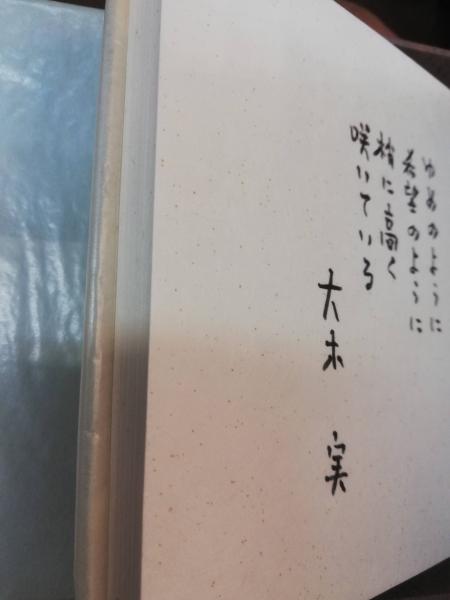 ゆめのように
希望のように
梢に高く
咲いている
大木 実